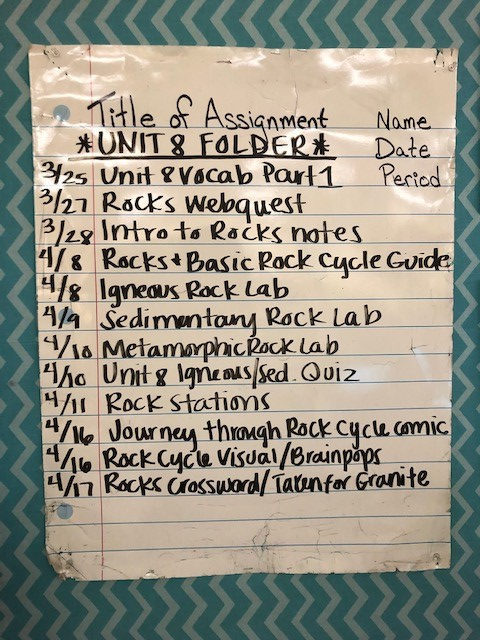 Title of Assignment Name
*UNIT 8 FOLDER* Date
3/25 Unit 8 Vocab Part 1 Period
3/27 Rocks Webquest
3/28 Intro to Rocks notes
4/8 Rocks + Basic Rock Cycle Guide
4/8 Igneous Rock Lab
4/9 Sedimentary Rock Lab
4/10 Metamorphic Rock Lab
4/10 Unit 8 Igneous/sed. Quiz
4/11 Rock Stations
4/16 Journey through Rock Cycle comic
4/16 Rock Cycle Visual/Brainpops
4/17 Rocks Crossword/Taken for Granite